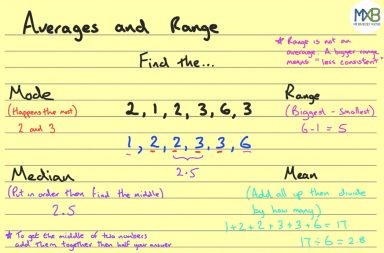 Averages and Range
MXB
* Range is not an
average. A bigger range
means "less consistent"
Find the...
Mode
(Happens the most)
2 and 3
2, 1, 2, 3, 6, 3
1, 2, 2, 3, 3, 6
2.5
Range
(Biggest - Smallest)
6-1 = 5
Median
(Put in order then find the middle)
2.5
* To get the middle of two numbers
add them together then half your answer
Mean
(Add all up then divide
by how many)
1+2+2+3+3+6=17
17÷6 = 2.8